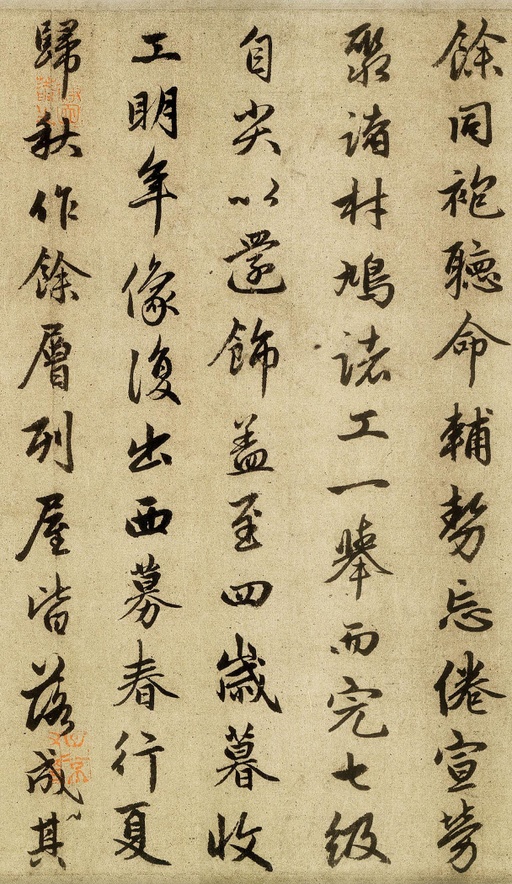 餘同袍聽命輔勢忘倦宣勞
聚諸材鳩諸工一舉而完七級
自尖以還飾盖至四歳暮收
工明年像復出西募春行夏
歸秋作餘層列屋皆落成其